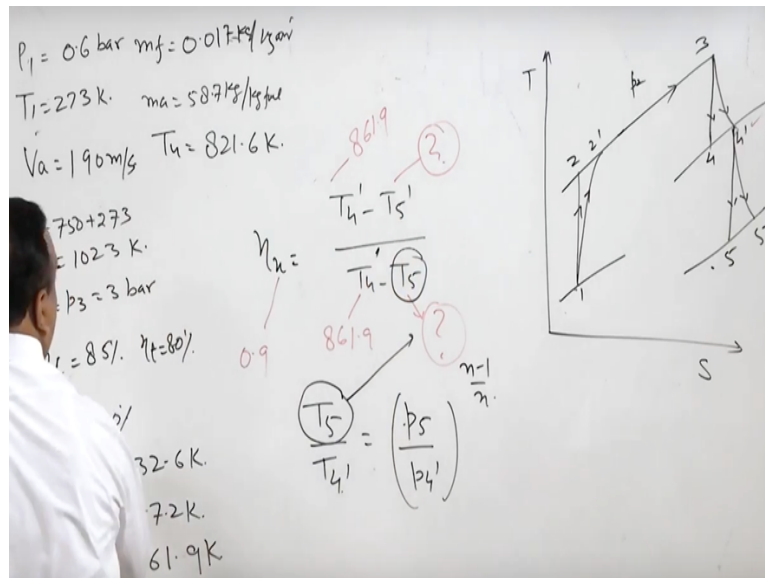 P₁ = 0.6 bar mf = 0.017 kg/kgair
T₁ = 273 K. ma = 58.7 kg/kg fuel
Va = 190 m/s T₄ = 821.6 K.
= 750 + 273
= 1023 K.
= P₃ = 3 bar
= 85% ηt = 80%
%
32.6 K.
7.2 K.
61.9 K
861.9
?
T₄' - T₅'
ηn =
T₄' - T₅
0.9
861.9
?
T₅
T₄'
=
(p₅
p₄')
n-1
n.
T
3
p₂
2 2'
4 4'
1
5 5'
S